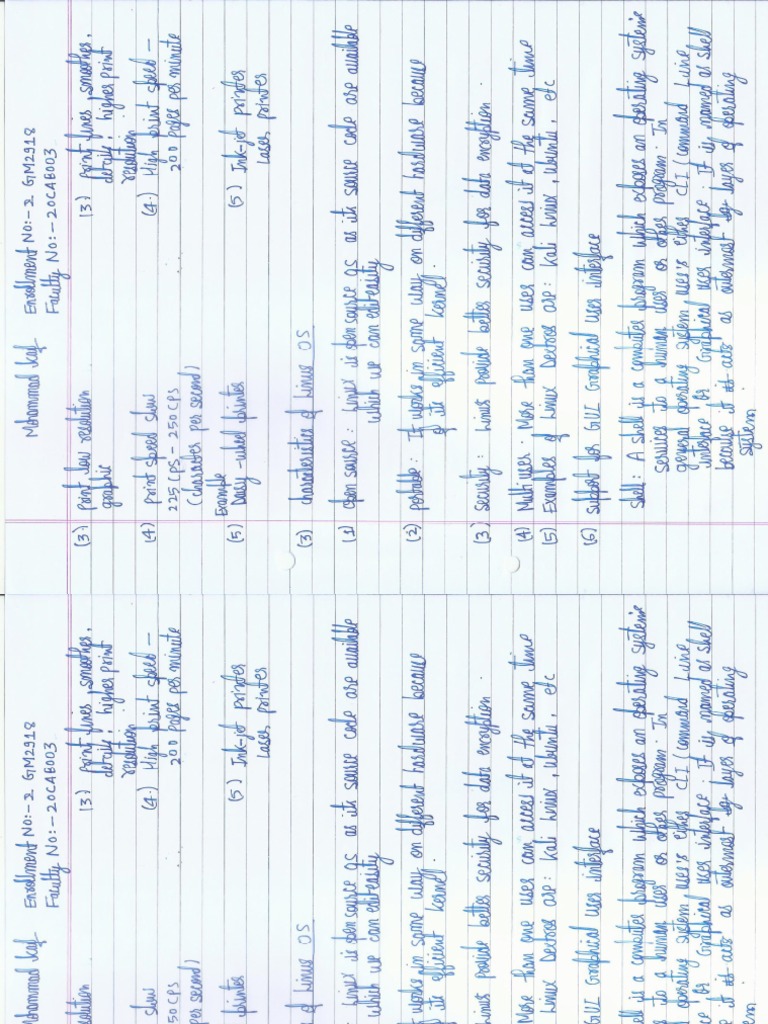 Mohammad Kaif Enrollment No:- 2 GM2918
Faculty No:- 20CAB003
(3) Print low resolution (3) print finer, smoother,
graphic details, higher print
resolution
(4) print speed slow (4) High print speed -
225 CPS - 250 CPS 200 Pages per minute
(character per second)
Example
(5) Daisy-wheel printer (5) Ink-jet printer
Laser printer
(3) characteristics of Linux OS
(1) open source: Linux is open source as its source code are available
which we can edit easity
(2) portable: It works in same way on different hardware because
of its efficient kernel.
(3) security: Linux provide better security for data encryption.
(4) Multi user: More than one user can access it at the same time
(5) Examples of Linux Destros are: Kali Linux, Ubuntu, etc
(6) support for GUI Graphical user interface
Shell: A shell is a computer program which exposes an operating system's
services to a human user or other program. In
general operating system use's either CLI (command Line
interface or Graphical user interface. It is named as shell
because it acts as outermost layer of operating
system.
Mohammad Kaif Enrollment No:- 2 GM2918
Faculty No:- 20CAB003
solution (3) print finer, smoother,
details, higher print
resolution
slow (4) High print speed -
50 CPS 200 Pages per minute
per second)
printer (5) Ink-jet printer
Laser printer
of Linux OS
Linux is open source as its source code are available
which we can edit easity
It works in same way on different hardware because
of its efficient kernel.
Linux provide better security for data encryption.
More than one user can access it at the same time
Linux Destros are: Kali Linux, Ubuntu, etc
GUI Graphical user interface
ell is a computer program which exposes an operating system's
to a human user or other program. In
operating system use's either CLI (command Line
or Graphical user interface. It is named as shell
it acts as outermost layer of operating
em.